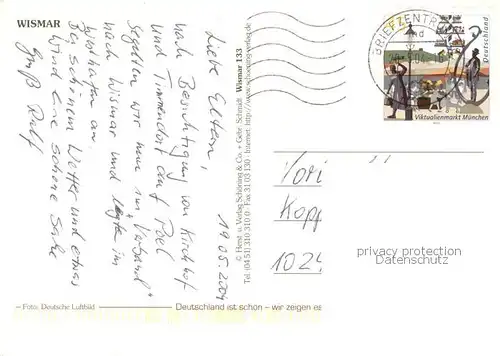 WISMAR
19.05.2004
Liebe Eltern,
nach Besichtigung von Kirchdorf
und Timmendorf auf Poel
segelten wir nun im "Verband"
nach Wismar und legten im
Westhafen an.
Bei schönem Wetter und etwas
Wind eine schöne Sache
Gruß Rolf
Foto: Deutsche Luftbild
Deutschland ist schön – wir zeigen es
© Herst. u. Verlag Schöning & Co. + Gebr. Schmidt Wismar 133
Tel. (04 51) 310 310 0 · Fax 31 03 130 · Internet: http://www.schoening-verlag.de
BRIEFZENTRUM
Deutschland
Viktualienmarkt München
Kopp
1024
privacy protection
Datenschutz